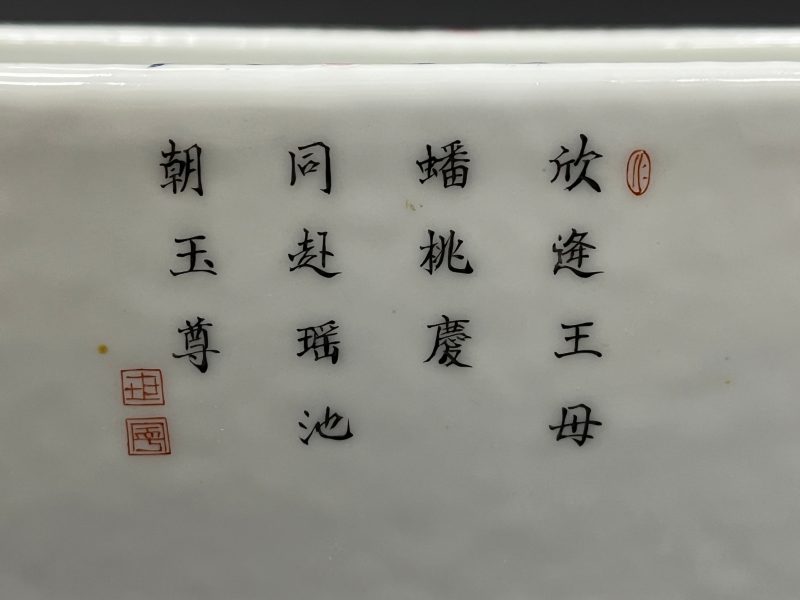 欣逄王母
蟠桃慶
同赴瑶池
朝玉尊